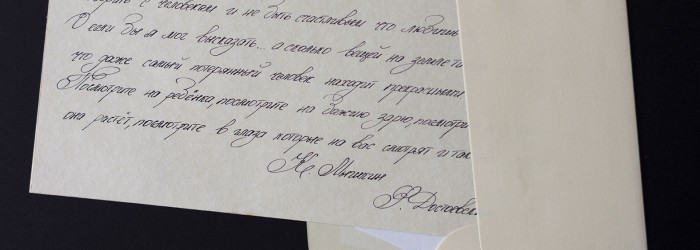 с человеком и не быть счастливым что любишь
О если бы я мог высказать... а сколько вещей на
что даже самый потерянный человек находит прекрасными
Посмотрите на ребёнка, посмотрите на Божию зарю, посмотри
она растёт, посмотрите в глаза которые на вас смотрят и
К. Мышкин
Ф. Достоевск